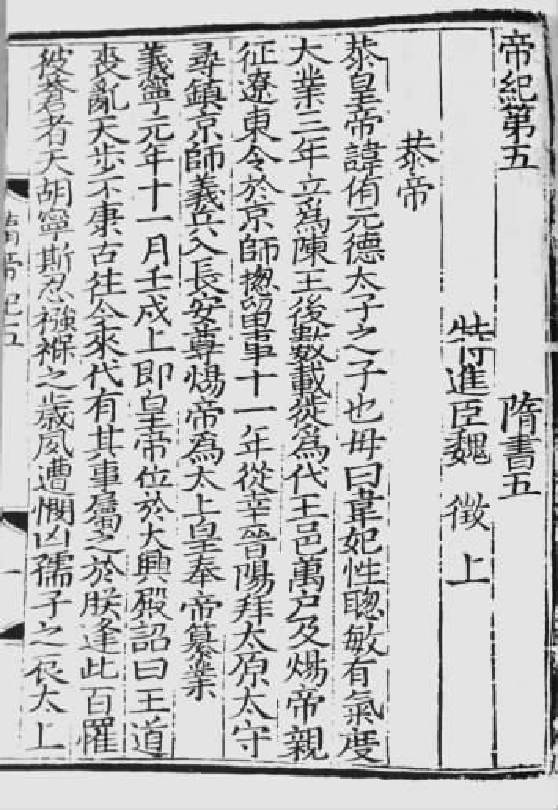 帝紀第五　隋書五
特進臣魏　徵　上
恭帝
恭皇帝諱侑元德太子之子也母曰韋妃性聰敏有氣度
大業三年立爲陳王後數載徙爲代王邑萬户及煬帝親
征遼東令於京師揔留事十一年從幸晉陽拜太原太守
尋鎮京師義兵入長安尊煬帝爲太上皇奉帝纂業
義寧元年十一月壬戌上即皇帝位於大興殿詔曰王道
喪亂天步不康古往今來代有其事屬之於朕逢此百罹
彼蒼者天胡寧斯忍襁褓之歲夙遭憫凶孺子之辰太上